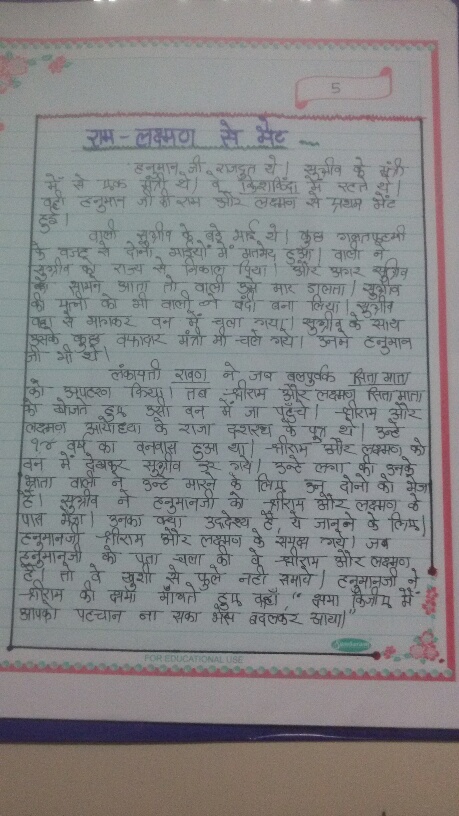 5
राम - लक्ष्मण से भेंट
हनुमान जी राजदूत थे। सुग्रीव के मंत्री
में से एक मंत्री थे। वे किशकिंदा में रहते थे।
वहाँ हनुमान जी की राम और लक्ष्मण से प्रथम भेंट
हुई।
वाली सुग्रीव के बड़े भाई थे। कुछ गलतफहमी
के वजह से दोनों भाइयों में मतभेद हुआ। वाली ने
सुग्रीव को राज्य से निकाल दिया। और अगर सुग्रीव
के सामने आता तो वाली उसे मार डालता। सुग्रीव
की पत्नी को भी वाली ने बंदी बना लिया। सुग्रीव
वहा से भागकर वन में चला गया। सुग्रीव के साथ
उसके कुछ वफादार मंत्री भी चले गये। उनमें हनुमान
जी भी थे।
लंकापती रावण ने जब बलपुर्वक सिता माता
को अपहरण किया। तब श्रीराम और लक्ष्मण सिता माता
को खोजते हुए उसी वन में जा पहुंचे। श्रीराम और
लक्ष्मण आयोध्या के राजा दशरथ के पुत्र थे। उन्हें
१४ वर्ष का वनवास हुआ था। श्रीराम और लक्ष्मण को
वन में देखकर सुग्रीव डर गये। उन्हें लगा की उनके
भ्राता वाली ने उन्हें मारने के लिए उन दोनों को भेजा
है। सुग्रीव ने हनुमानजी को श्रीराम और लक्ष्मण के
पास भेजा। उनका क्या उद्देश्य है, ये जानने के लिए।
हनुमानजी श्रीराम और लक्ष्मण के समक्ष गये। जब
हनुमानजी को पता चला की वे श्रीराम और लक्ष्मण
है। तो वे खुशी से फुले नहीं समाये। हनुमानजी ने
श्रीराम की क्षमा माँगते हुए कहाँ, "क्षमा किजीए मैं
आपको पहचान ना सका भेस बदलकर आया।"
FOR EDUCATIONAL USE
Sundaram